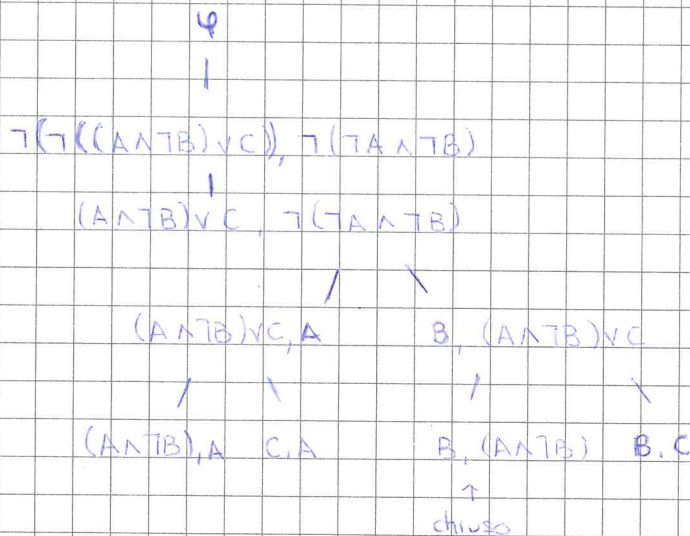 φ
¬(¬(((A∧¬B)∨C)), ¬(¬A∧¬B)
(A∧¬B)∨C, ¬(¬A∧¬B)
(A∧¬B)∨C, A B, (A∧¬B)∨C
(A∧¬B), A C, A B, (A∧¬B) B. C
↑
chiuso